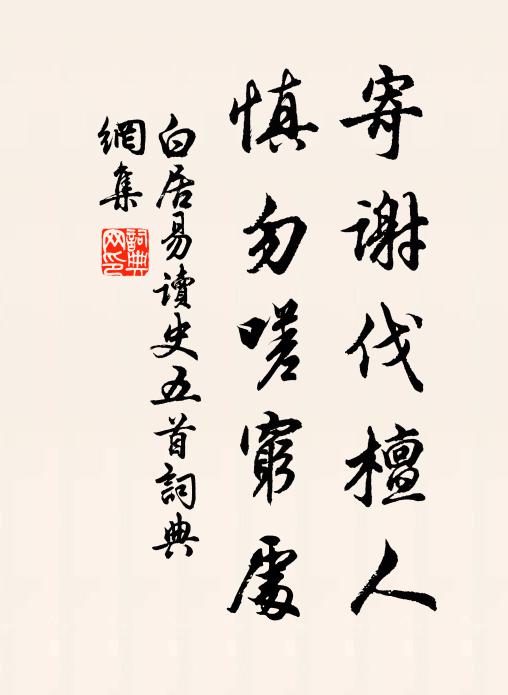 寄謝伐檀人
慎勿嗟窮處
白居易讀史五首詞典
網集
詞典
网印